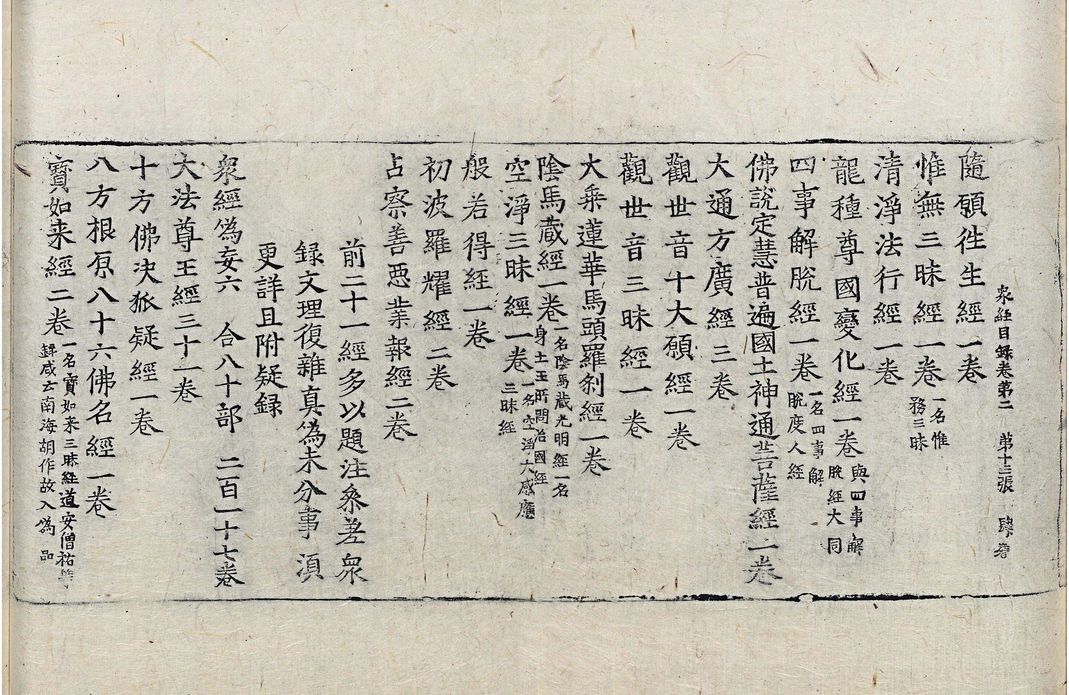 衆經目録卷第二　第十三張　肆
隨願徃生經一卷
惟無三昧經一卷 一名惟務三昧
清淨法行經一卷
龍種尊國變化經一卷 與四事解脫經大同
四事解脫經一卷 一名四事解脫度人經
佛說定慧普遍國土神通菩薩經一卷
大通方廣經三卷
觀世音十大願經一卷
觀世音三昧經一卷
大乘蓮華馬頭羅剎經一卷
陰馬藏經一卷 一名陰馬藏光明經一名身土王所問治國經
空淨三昧經一卷 一名空淨大感應三昧經
般若得經一卷
初波羅耀經二卷
占察善惡業報經二卷
前二十一經多以題注叅差衆
録文理復雜真偽未分事湏
更詳且附疑録
衆經偽妄六　合八十部　二百一十七卷
大法尊王經三十一卷
十方佛决狐疑經一卷
八方根原八十六佛名經一卷
寳如来經二卷 一名寳如来三昧經道安僧祐等録咸云南海胡作故入偽品